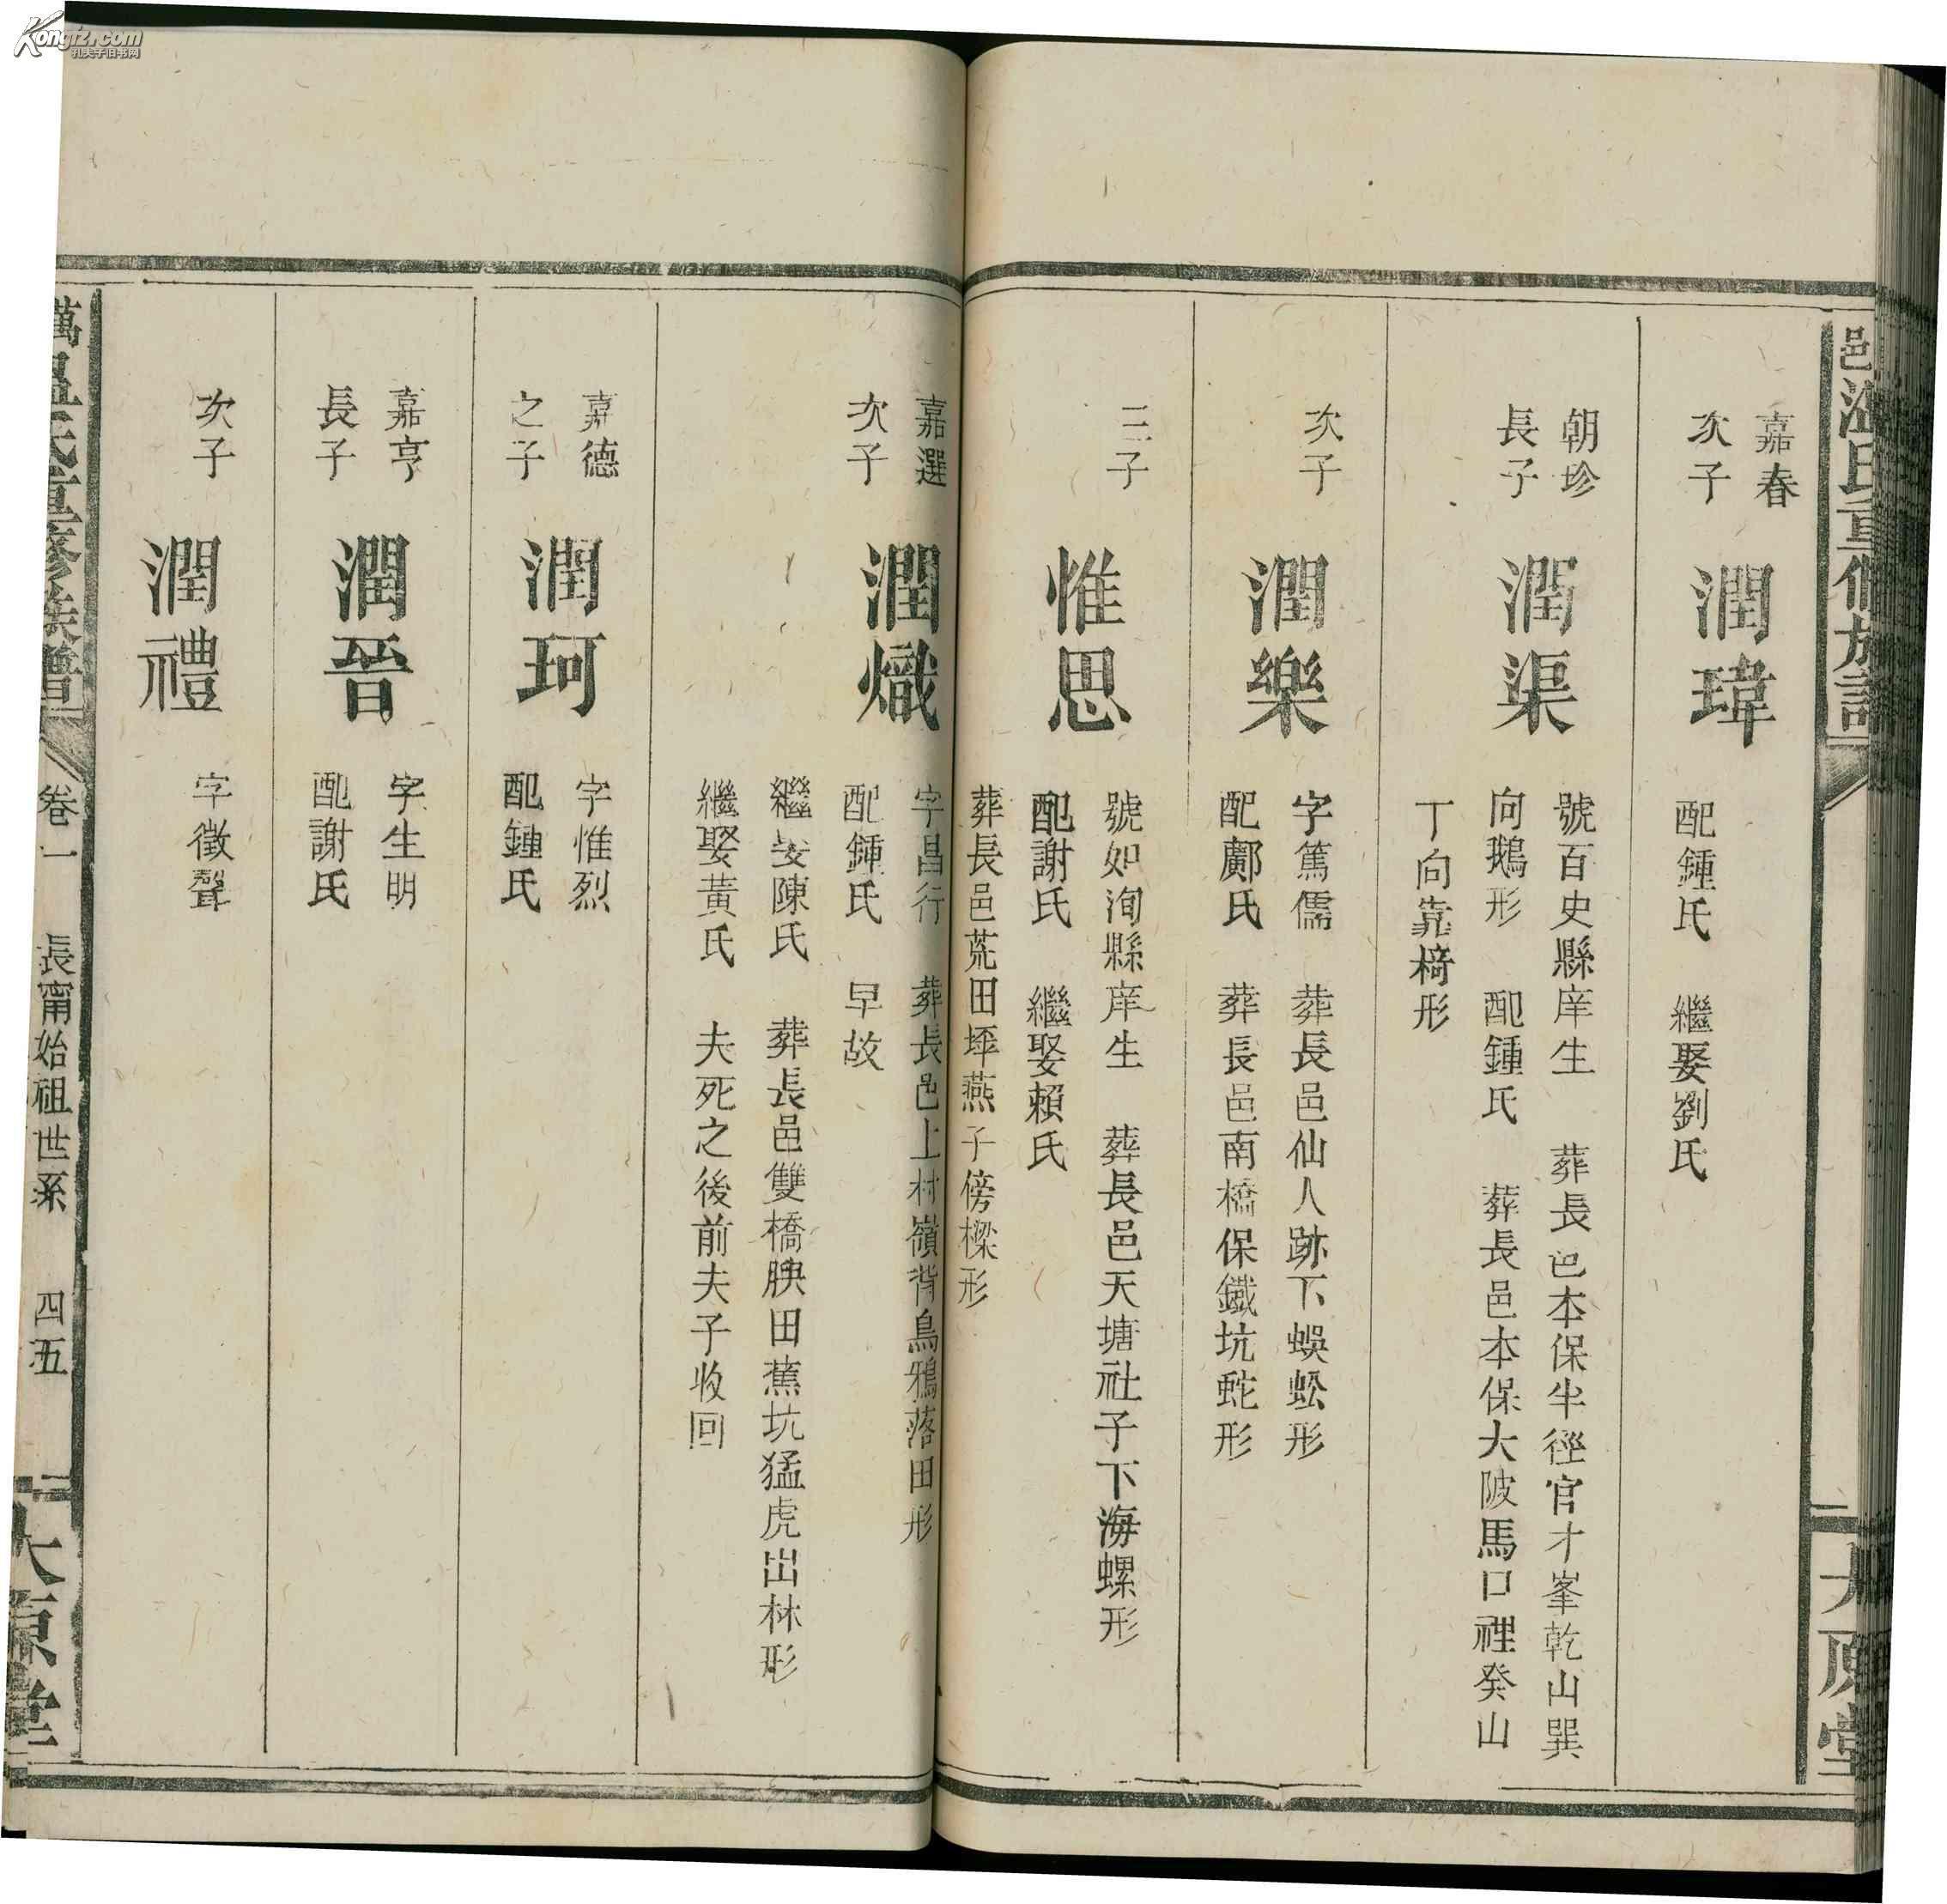 邑溫氏重修族譜
大原堂
嘉春
次子
潤瑋
配鍾氏 繼娶劉氏
朝珍
長子
潤渠
號百史縣庠生 葬長邑本保半徑官才峯乾山巽
向鵝形 配鍾氏 葬長邑本保大陂馬口裡癸山
丁向靠椅形
次子
潤樂
字篤儒 葬長邑仙人跡下蜈蚣形
配鄺氏 葬長邑南橋保鐵坑蛇形
三子
惟思
號如洵縣庠生 葬長邑天塘社子下海螺形
配謝氏 繼娶賴氏
葬長邑荒田坪燕子傍樑形
嘉選
次子
潤熾
字昌行 葬長邑上村嶺背烏鴉落田形
配鍾氏 早故
繼娶陳氏 葬長邑雙橋腴田蕉坑猛虎出林形
繼娶黃氏 夫死之後前夫子收回
嘉德
之子
潤珂
字惟烈
配鍾氏
嘉亨
長子
潤晉
字生明
配謝氏
次子
潤禮
字徵聲
萬邑溫氏重修族譜
卷一 長甯始祖世系 四五
太原堂
Kongfz.com
孔夫子旧书网